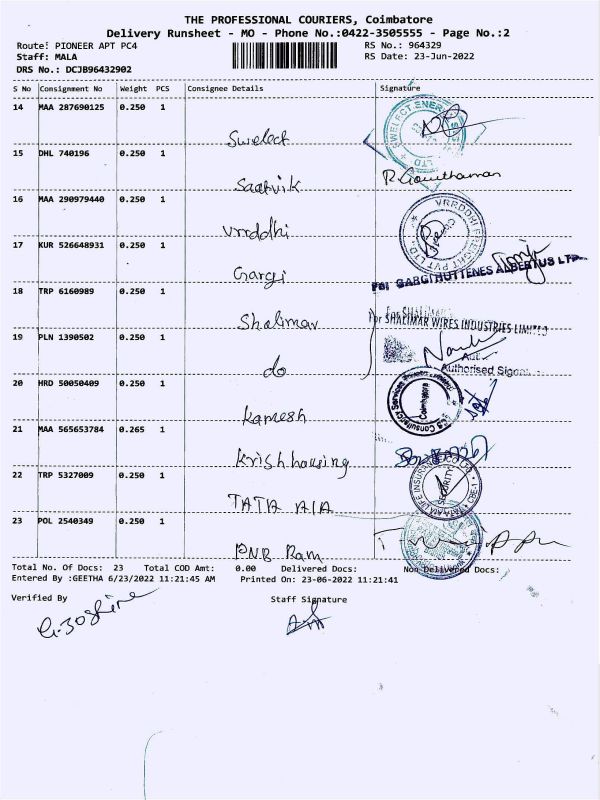 THE PROFESSIONAL COURIERS, Coimbatore
Delivery Runsheet - MO - Phone No.:0422-3505555 - Page No.:2
Route: PIONEER APT PC4 RS No.: 964329
Staff: MALA RS Date: 23-Jun-2022
DRS No.: DCJB96432902
S No Consignment No Weight PCS Consignee Details Signature
14 MAA 287690125 0.250 1
Swelect
15 DHL 740196 0.250 1
Saatvik R. Gowthaman
16 MAA 290979440 0.250 1
Vrrddhi VRRDDHI FREIGHT PVT LTD.,
17 KUR 526648931 0.250 1
Gargi For GARGI HUTTENES ALBERTUS LTD.
18 TRP 6160989 0.250 1
Shalimar For SHALIMAR WIRES INDUSTRIES LIMITED
19 PLN 1390502 0.250 1
do Authorised
20 HRD 50050409 0.250 1
Kamesh Coimbatore
21 MAA 565653784 0.265 1
Krish housing
22 TRP 5327009 0.250 1
TATA AIA SECURITY
23 POL 2540349 0.250 1
PNB Ram
Total No. Of Docs: 23 Total COD Amt: 0.00 Delivered Docs: Non Delivered Docs:
Entered By :GEETHA 6/23/2022 11:21:45 AM Printed On: 23-06-2022 11:21:41
Verified By Staff Signature